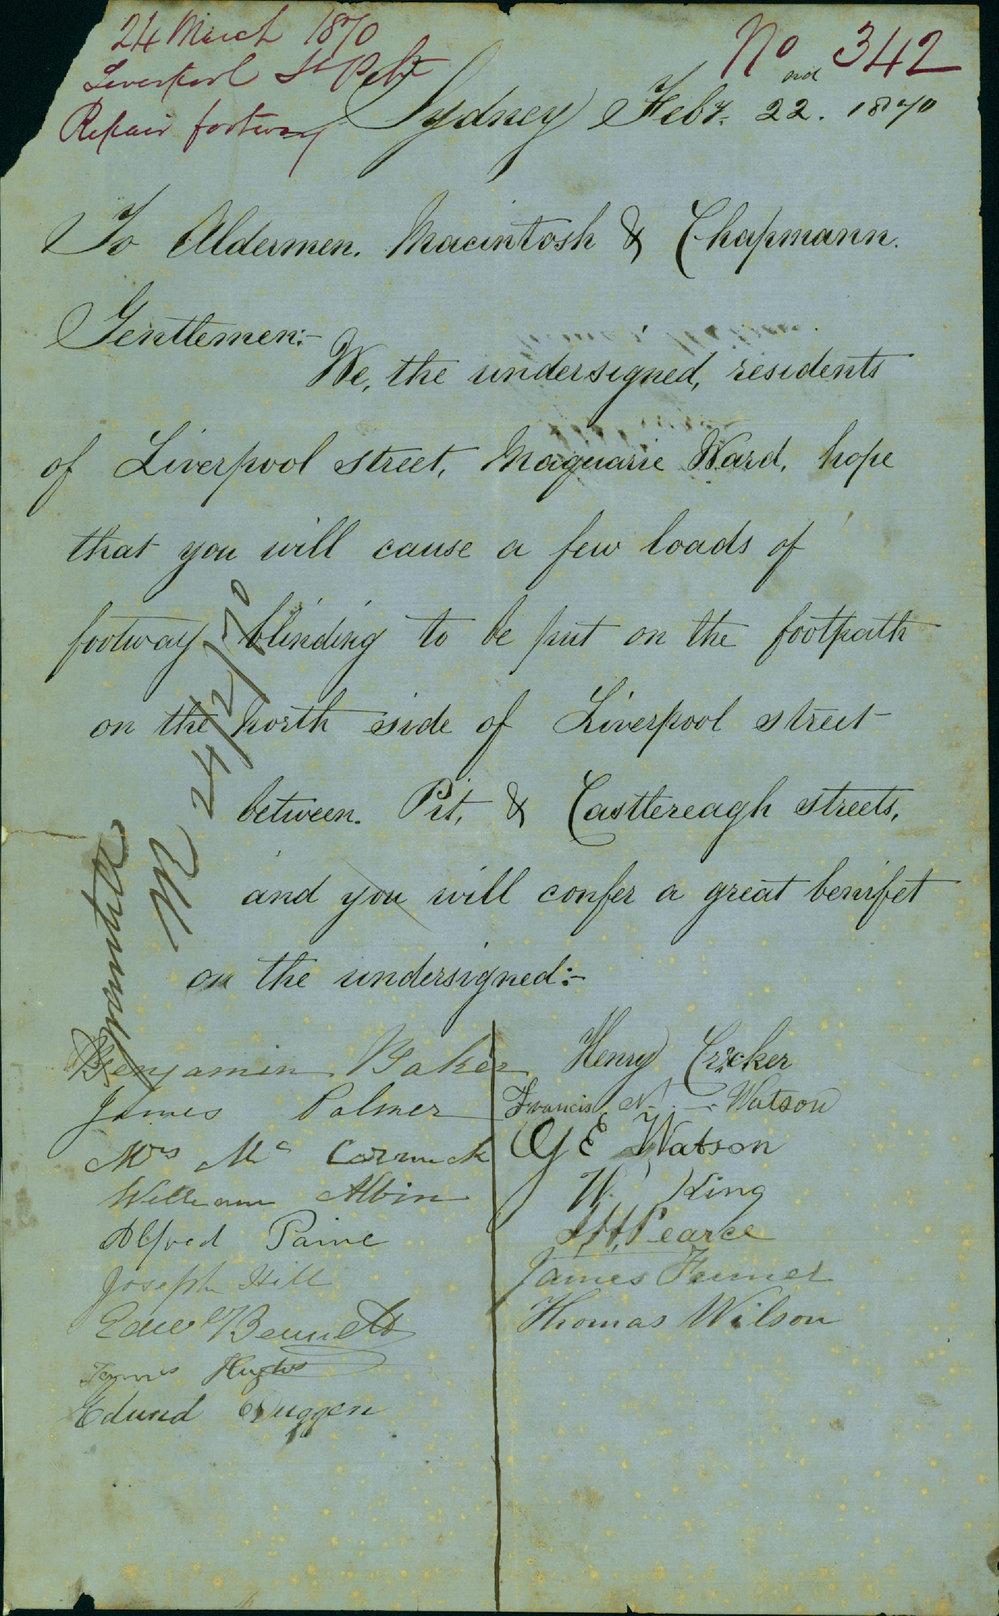 24 March 1870
Liverpool St
Repair footway
No 342
Sydney Feby. 22nd. 1870
To Aldermen. Macintosh & Chapmann.
Gentlemen:-
We, the undersigned, residents
of Liverpool street, Maquarie Ward, hope
that you will cause a few loads of
footway blinding to be put on the footpath
on the north side of Liverpool street
between. Pit, & Casttereagh streets,
and you will confer a great benifet
on the undersigned:-
Granted
M 24/2/70
Benjamin Baker
James Palmer
Mrs Mc Cormick
William Albin
Alfred Paine
Joseph Hill
Edwd Bennett
James Hughes
Edund Duggen
Henry Cricker
Francis N. Watson
G E Watson
W. King
Pearce
James
Thomas Wilson